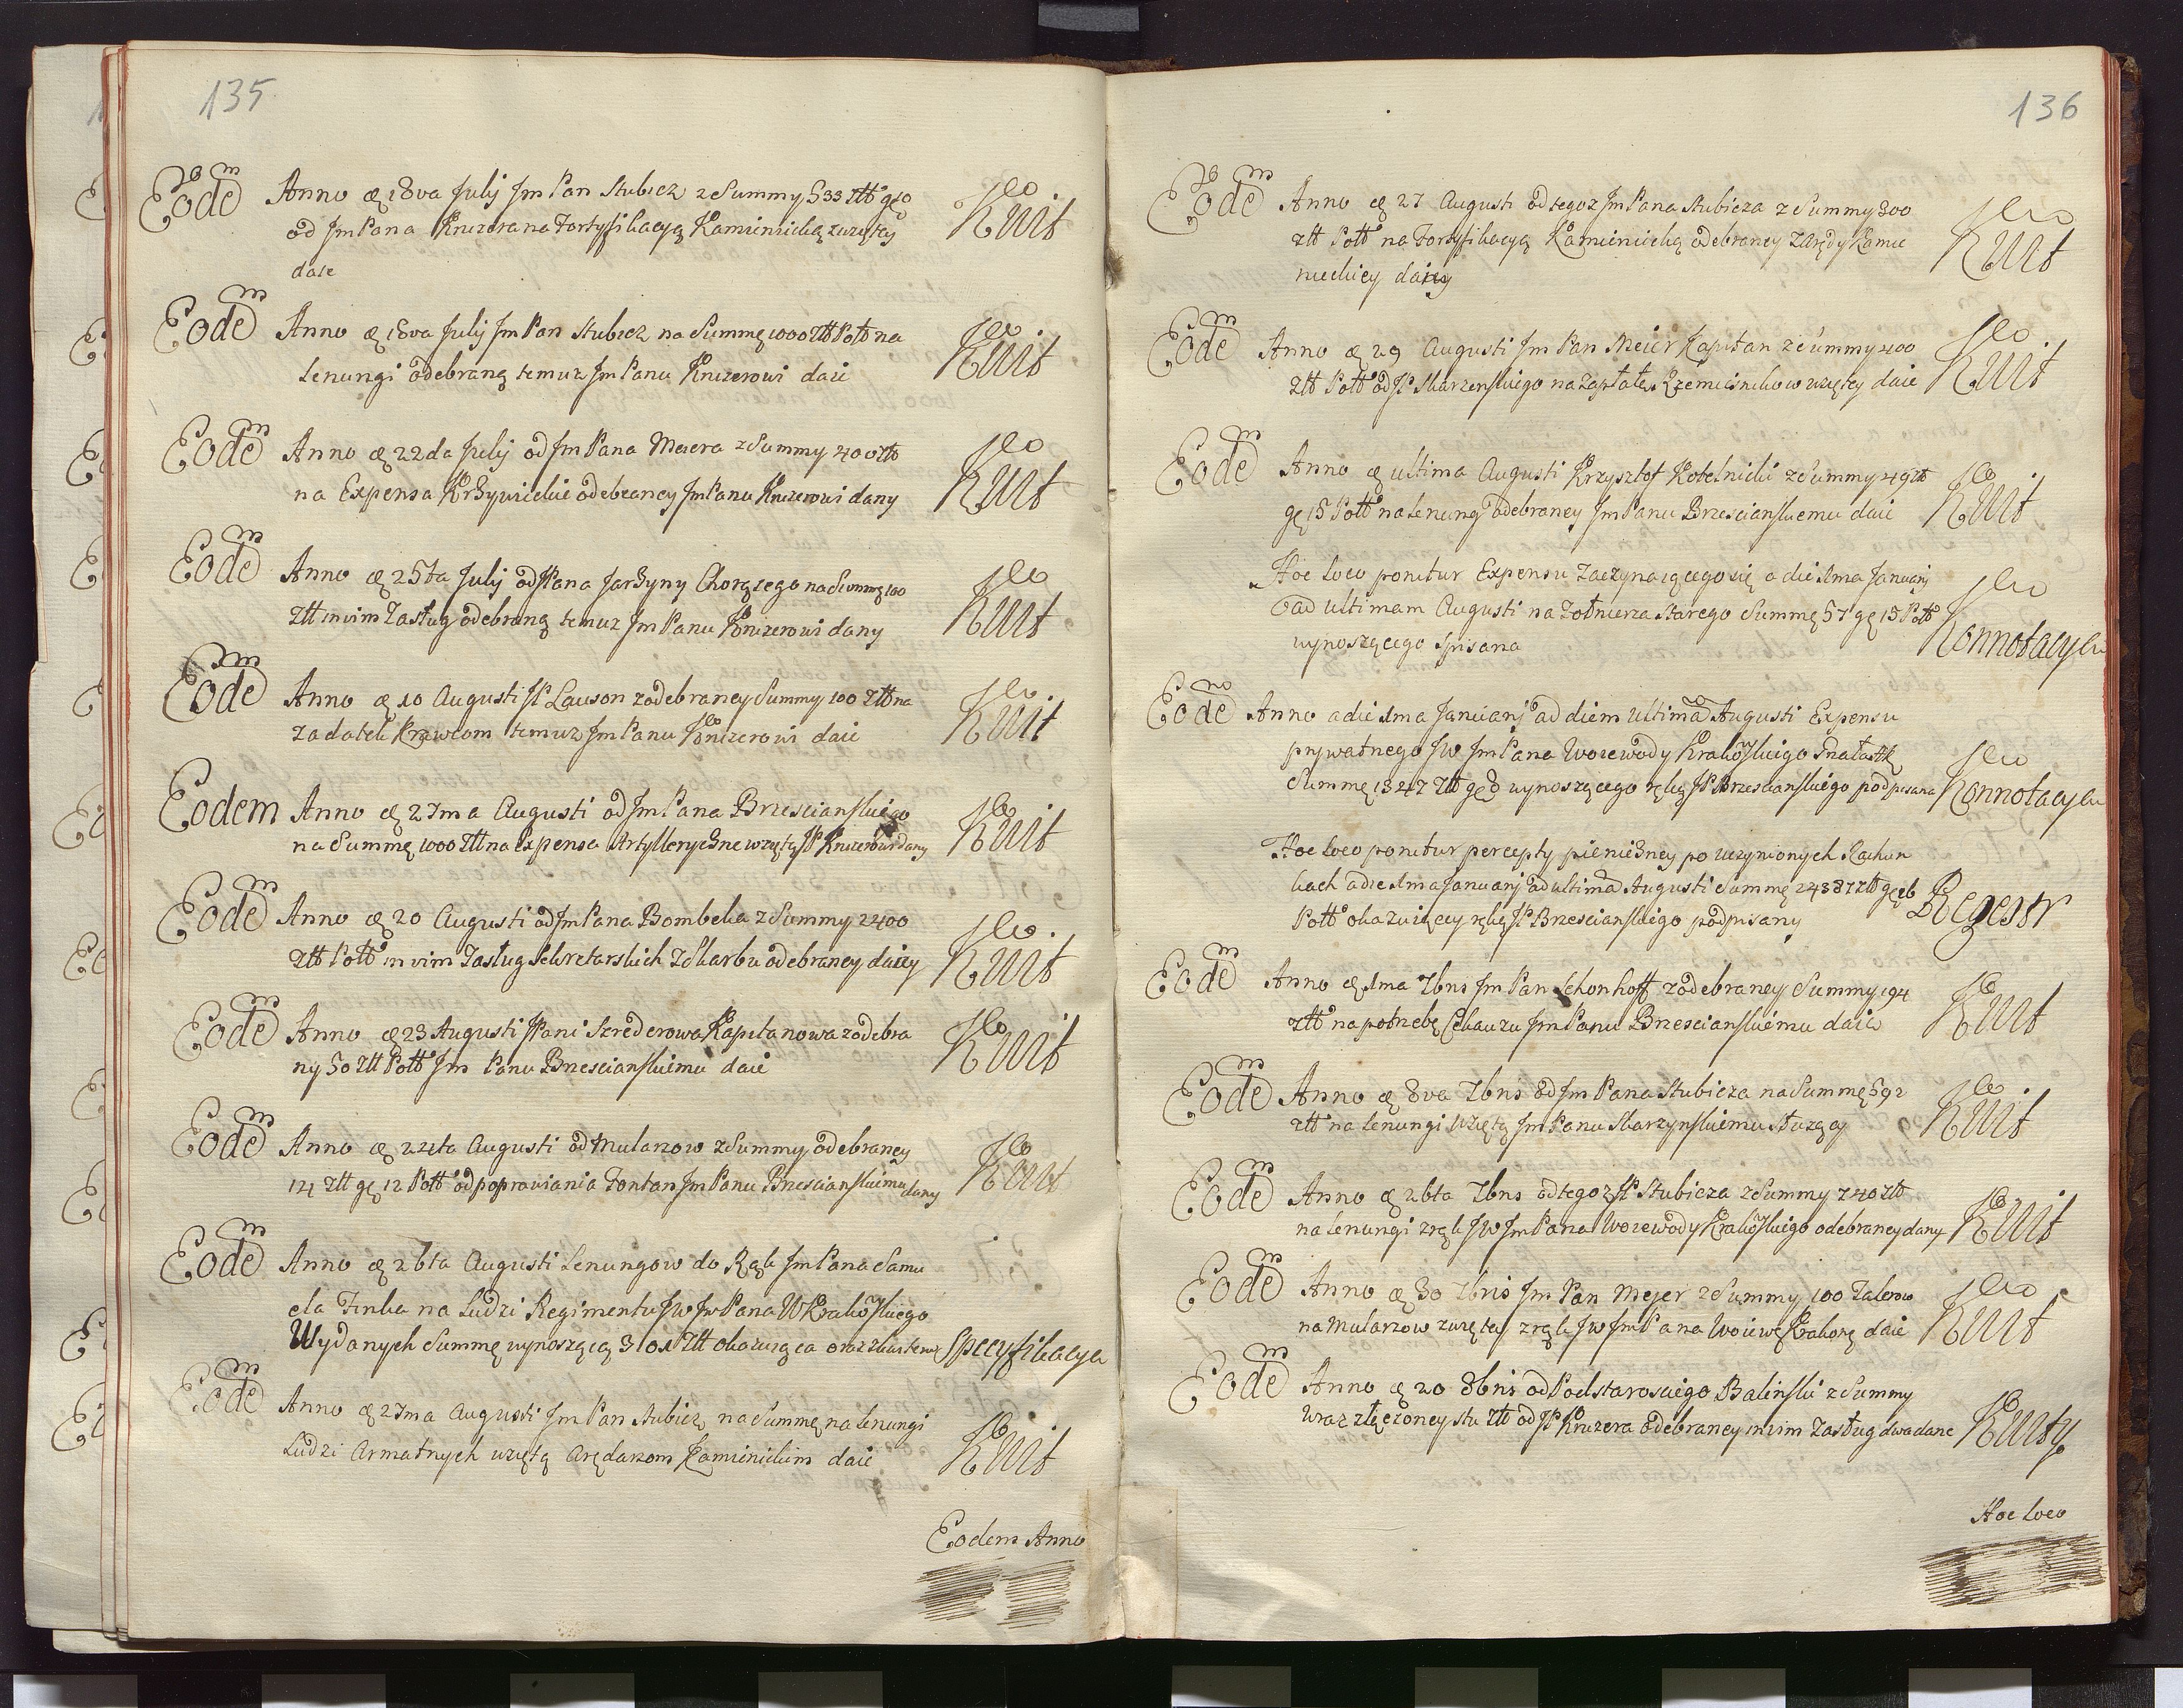 135
Eodē Anno ę 18va Julij Jm Pan Stubicz z Summy 533 Złł gr 10 Kwit
od Jm Pana Knizera na Fortyfikacyą Kamieniecką wziętey
daie
Eodē Anno ę 18va Julij Jm Pan Stubicz na Summę 1000 Złł Poll na Kwit
Lenungi odebraną temuż Jm Panu Knizerowi daie
Eodē Anno ę 22da Julij od Jm Pana Meiera z Summy 400 Złł Kwit
na Expensa Krzywieckie odebraney Jm Panu Knizerowi dany
Eodē Anno ę 25ta Julij od JPana Jarzyny Chorążego na Summę 100 Kwit
Złł in vim Zasług odebraną temuż Jm Panu Knizerowi dany
Eodē Anno ę 10 Augusti JP Lauson z odebraney Summy 100 Złł na Kwit
zadatek Krawcom temuż Jm Panu Knizerowi daie
Eodem Anno ę 27ma Augusti od Jm Pana Brzescianskiego Kwit
na Summę 1000 Złł na Expensa Artylleryczne wziętą JP Knizerowi dany
Eodē Anno ę 20 Augusti od Jm Pana Bombeka z Summy 2400 Kwit
Złł Poll in vim Zasług Sekretarskich z Skarbu odebraney daięy
Eodē Anno ę 23 Augusti JPani Szrederowa Kapitanowa z odebra Kwit
ny 50 Złł Poll Jm Panu Brzescianskiemu daie
Eodē Anno ę 24ta Augusti od Mularzow z Summy odebraney Kwit
14 Złł gę 12 Poll od poprawiania Fontan Jm Panu Brzescianskiemu dany
Eodē Anno ę 26ta Augusti Lenungow do Rąk Jm Pana Samu
ela Finka na Ludzi Regimentu JW Jm Pana W Krakoskiego
Wydanych Summę wynoszącą 3101 Złł okazuiąca oraz z kwitem Specyfikacya
Eodē Anno ę 27ma Augusti Jm Pan Stubicz na Summę na Lenungi Kwit
Ludzi Armatnych wziętą Arędarzom Kamienickim daie
Eodem Anno
136
Eodē Anno ę 27 Augusti od tegoż Jm Pana Stubicza z Summy 300 Kwit
Złł Poll na Fortyfikacyą Kamieniecką odebraney z Arędy Kamie
nieckiey daięy
Eodē Anno ę 29 Augusti Jm Pan Meier Kapitan z Summy 400 Kwit
Złł Poll od JP Skarzenskiego na Zapłatę Rzemieśnikow wziętey daie
Eodē Anno ę ultima Augusti Krzysztof Kotelnicki z Summy 49 Złł Kwit
gę 15 Poll na Lenung odebraney Jm Panu Brzescianskiemu daie
Hoc loco ponitur Expensu zaczynaiącego się a die 1ma Januarij
ad ultimam Augusti na Zołnierza Starego Summę 57 gę 15 Poll Konnotacya
wynoszącego Spisana
Eodē Anno a die 1ma Januarij ad diem ultimā Augusti Expensu
prywatnego JW Jm Pana Woiewody Krakoskiego
Summę 13247 Złł gę 8 wynoszącego ręką JP Brzescianskiego podpisana Konnotacya
Hoc loco ponitur percepty pieniężney po uczynionych Rachun
kach a die 1ma Januarij ad ultimā Augusti Summę 24387 Złł gę 26 Regestr
Poll okazuiącey ręką JP Brzescianskiego podpisany
Eodē Anno ę 1ma 7bris Jm Pan Schonhoff z odebraney Summy 194 Kwit
Złł na potrzebę Cekauzu Jm Panu Brzescianskiemu daie
Eodē Anno ę 8va 7bris od Jm Pana Stubicza na Summę 592 Kwit
Złł na Lenungi wziętą Jm Panu Skarzynskiemu służący
Eodē Anno ę 26ta 7bris od tegoż JP Stubicza z Summy 740 Złł Kwit
na Lenungi z rąk JW Jm Pana Woiewody Krakoskiego odebraney dany
Eodē Anno ę 30 7bris Jm Pan Mejer z Summy 100 Talerow Kwit
na Mularzow wziętey z rąk JW Jm Pana Woiewę Krakorę daie
Eodē Anno ę 20 8bris od Podstarosciego Balinski z Summy
wraz złączoney sta Złł od JP Knizera odebraney in vim Zasług dwa dane Kwity
Hoc loco